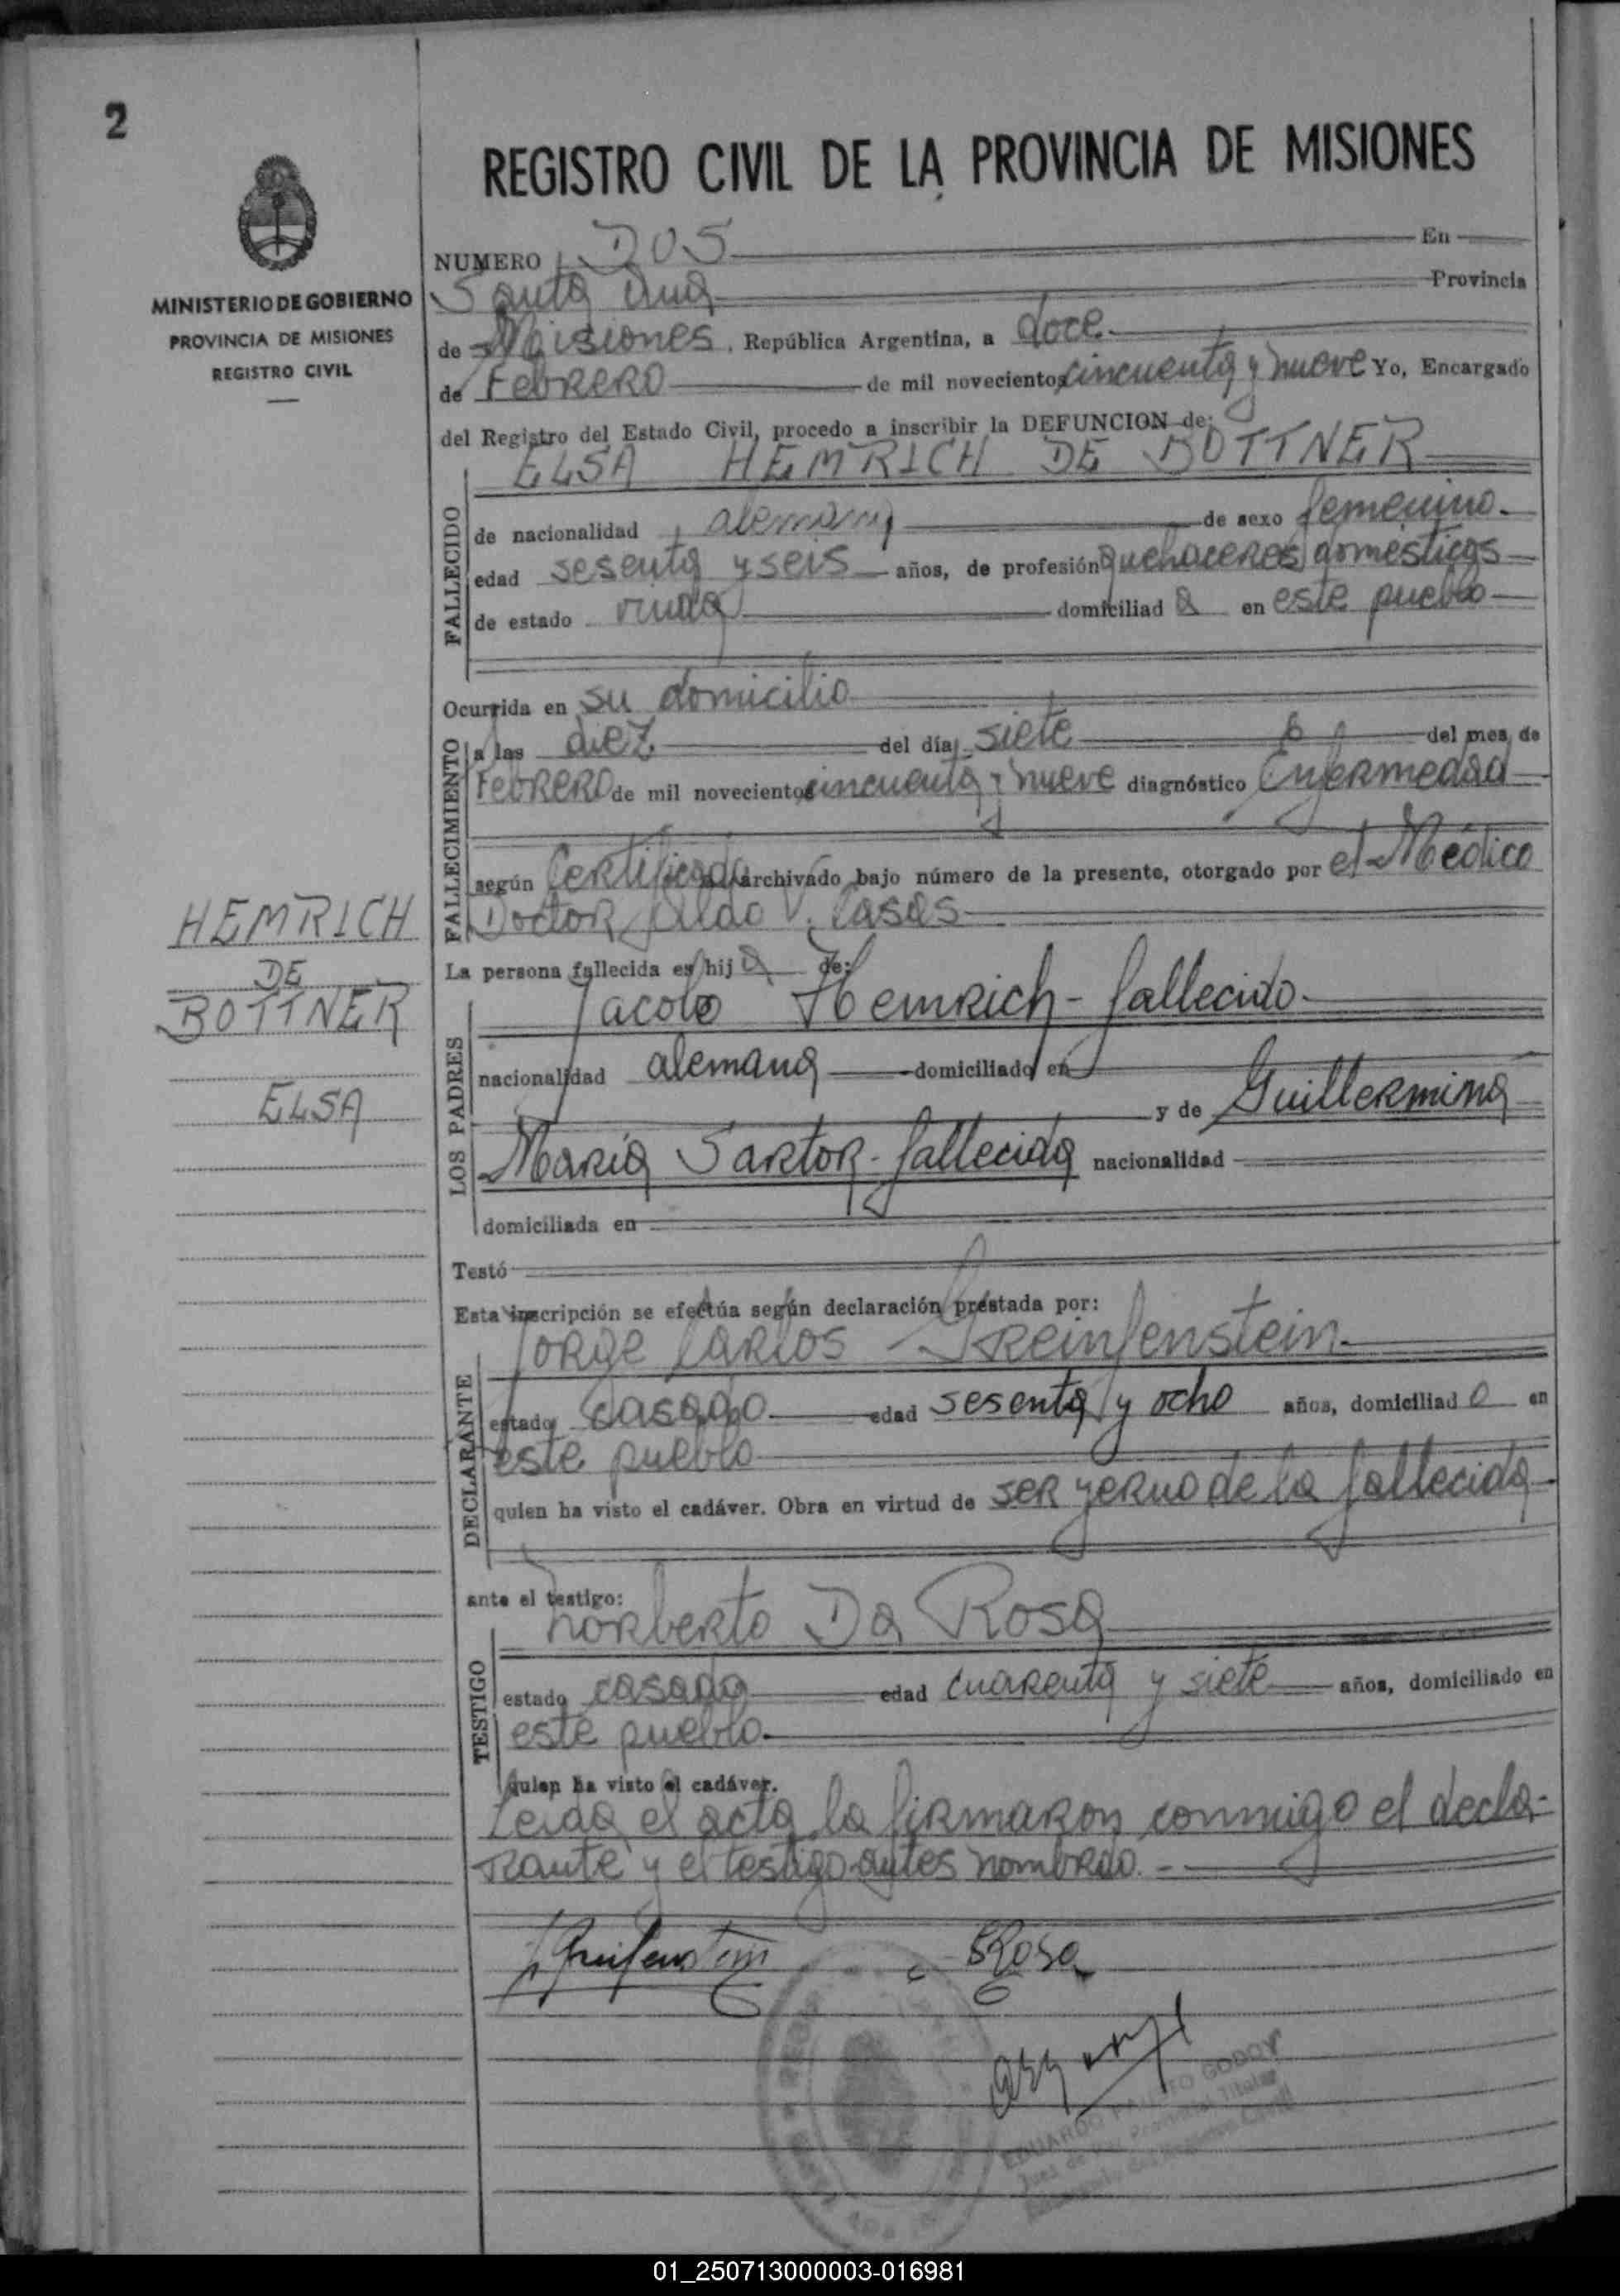 2
REGISTRO CIVIL DE LA PROVINCIA DE MISIONES
MINISTERIO DE GOBIERNO
PROVINCIA DE MISIONES
REGISTRO CIVIL
NUMERO DOS En
Santa Ana Provincia
de Misiones, República Argentina, a doce
de Febrero de mil novecientos cincuenta y nueve Yo, Encargado
del Registro del Estado Civil, procedo a inscribir la DEFUNCION de:
ELSA HEMRICH DE BOTTNER
FALLECIDO
de nacionalidad alemana de sexo femenino
edad sesenta y seis años, de profesión quehaceres domesticos
de estado viuda domiciliad a en este pueblo
Ocurrida en su domicilio
FALLECIMIENTO
a las diez del día siete del mes de
Febrero de mil novecientos cincuenta y nueve diagnóstico Enfermedad
según Certificado archivado bajo número de la presente, otorgado por el Médico
Doctor Aldo V. Casas
HEMRICH
DE
BOTTNER
ELSA
La persona fallecida es hij a de:
LOS PADRES
Jacobo Hemrich - fallecido
nacionalidad alemana domiciliado en
y de Guillermina
Maria Sartor - fallecida nacionalidad
domiciliada en
Testó
Esta inscripción se efectúa según declaración prestada por:
DECLARANTE
Jorge Carlos Greinfenstein
estado casado edad sesenta y ocho años, domiciliad o en
este pueblo
quien ha visto el cadáver. Obra en virtud de ser yerno de la fallecida
ante el testigo:
TESTIGO
Norberto Da Rosa
estado casado edad cuarenta y siete años, domiciliado en
este pueblo
quien ha visto el cadáver.
Leida el acta la firmaron conmigo el decla-
rante y el testigo antes nombrado. -
Rosa
EDUARDO GODOY
Juez de Paz Provincial Titular
01_250713000003-016981